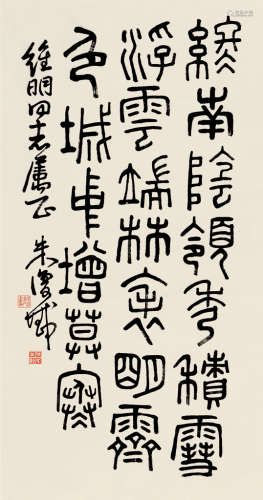 終南陰領秀積雪
浮雲端林表明霽
色城中增莫寒
維明同志屬正
朱復戡